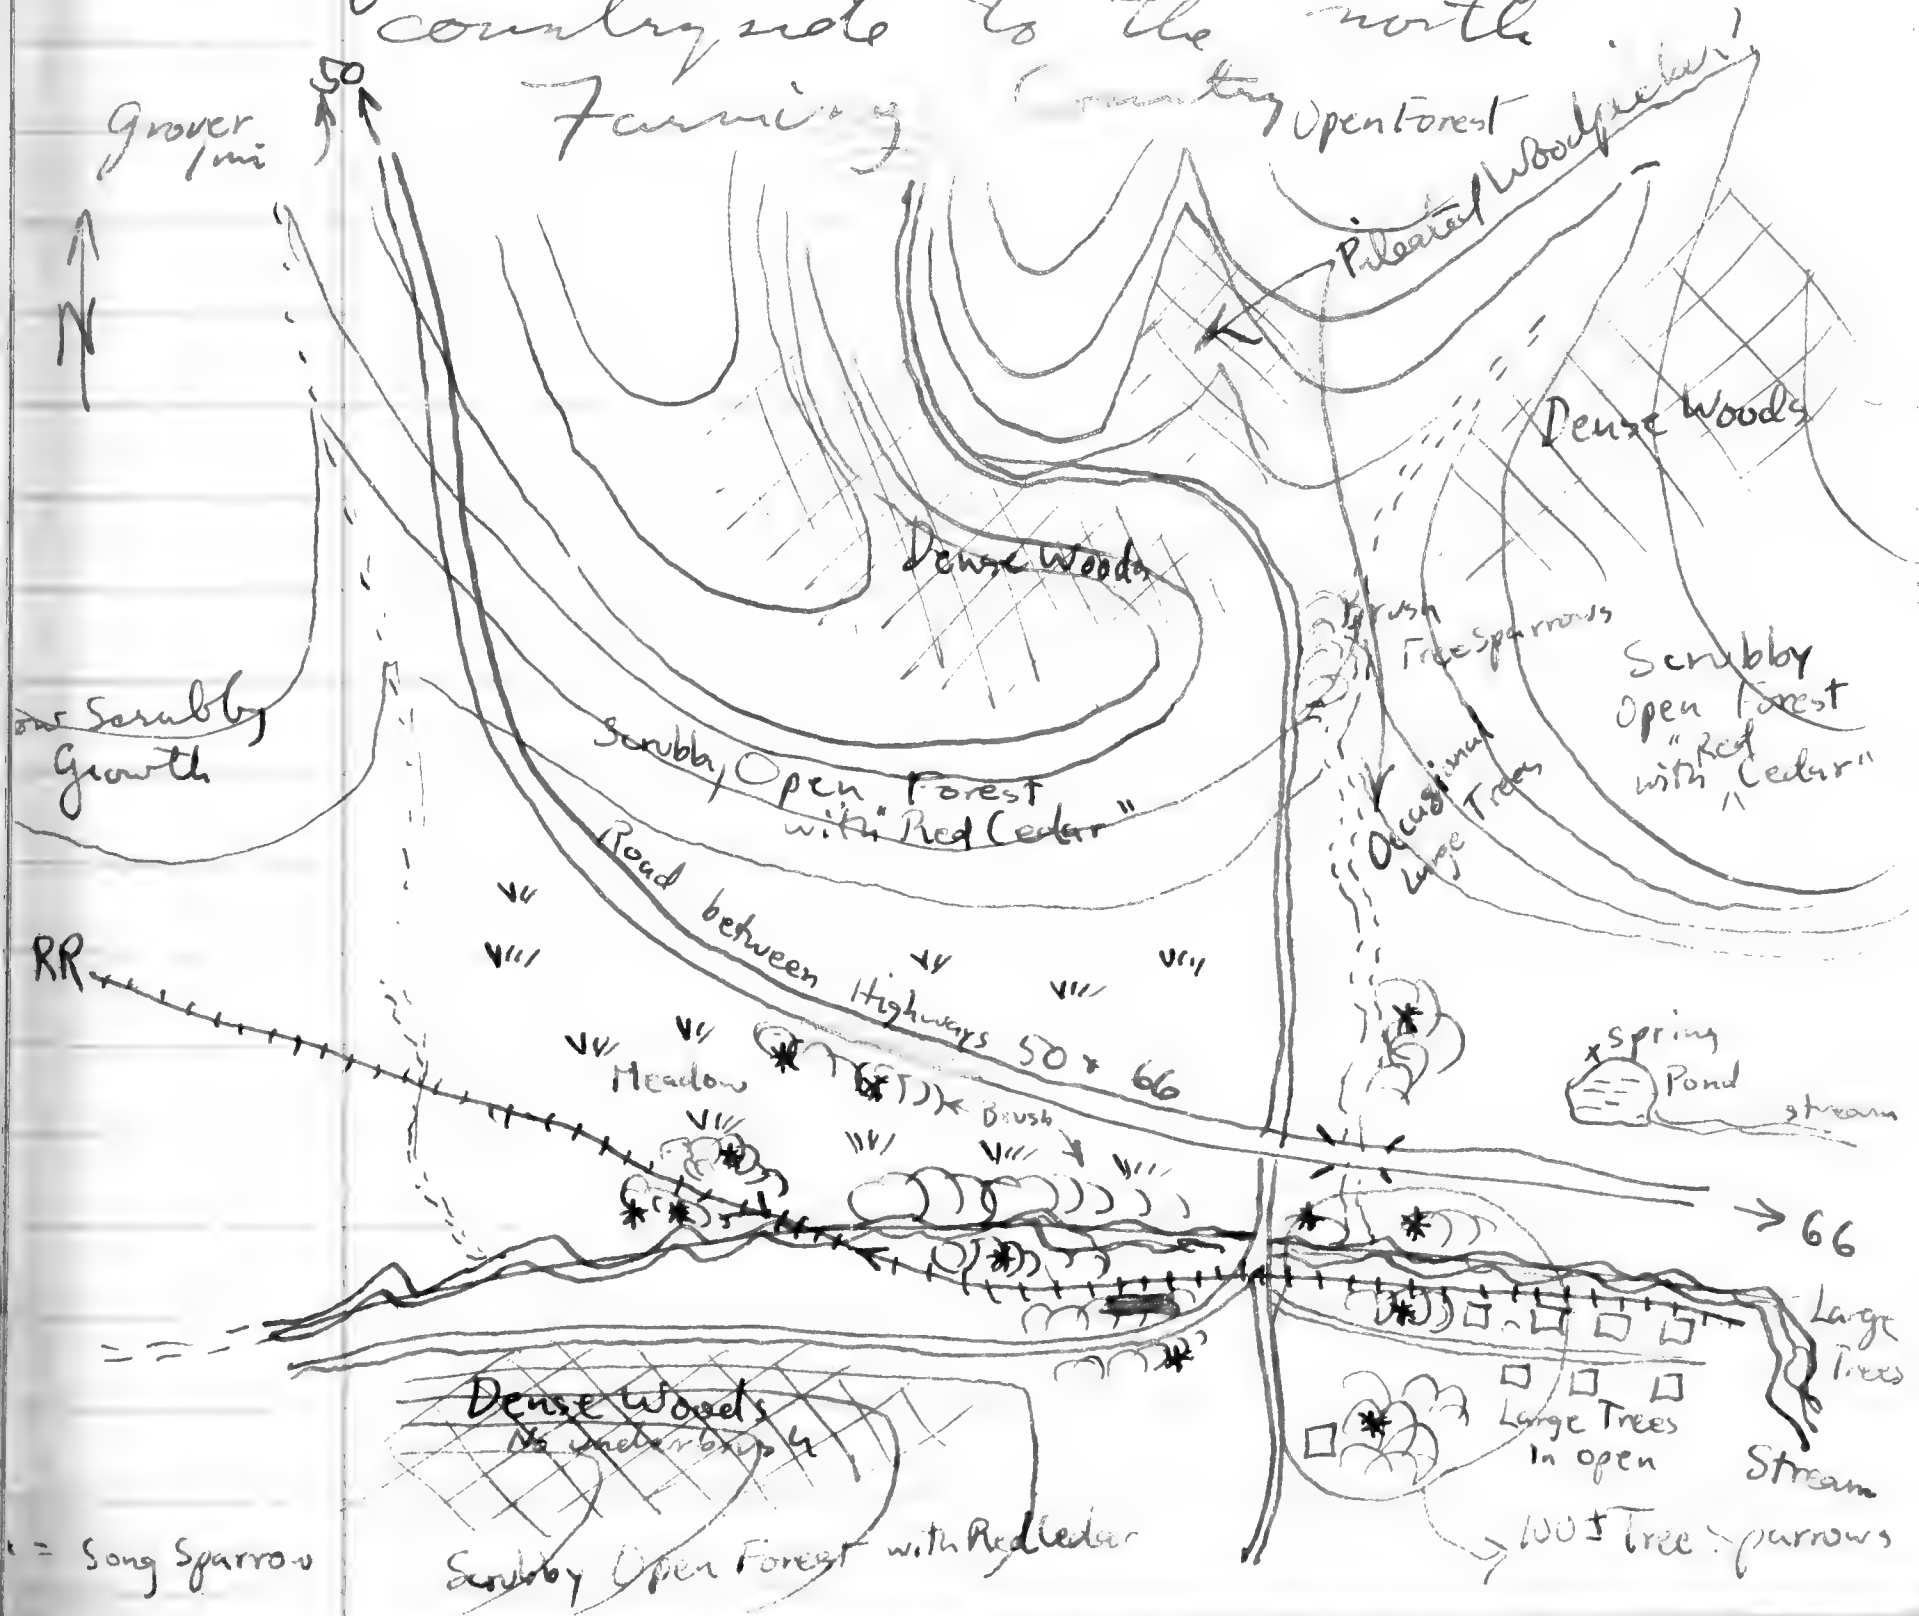 countryside to the north
50
Grover
1 mi
Farming Country
Open Forest
Pileated Woodpecker!
N
Dense Woods
Dense Woods
Brush
Tree Sparrows
Scrubby
Open Forest
"Red
with Cedar"
^
Scrubby
Growth
Scrubby Open Forest
with "Red Cedar"
Occasional
Large Trees
Road between Highways 50 & 66
RR
Meadow
Brush
x spring
Pond
stream
→ 66
Large
Trees
Dense Woods
No underbrush
Large Trees
In open
Stream
= Song Sparrow
Scrubby Open Forest with Red Cedar
100± Tree Sparrows